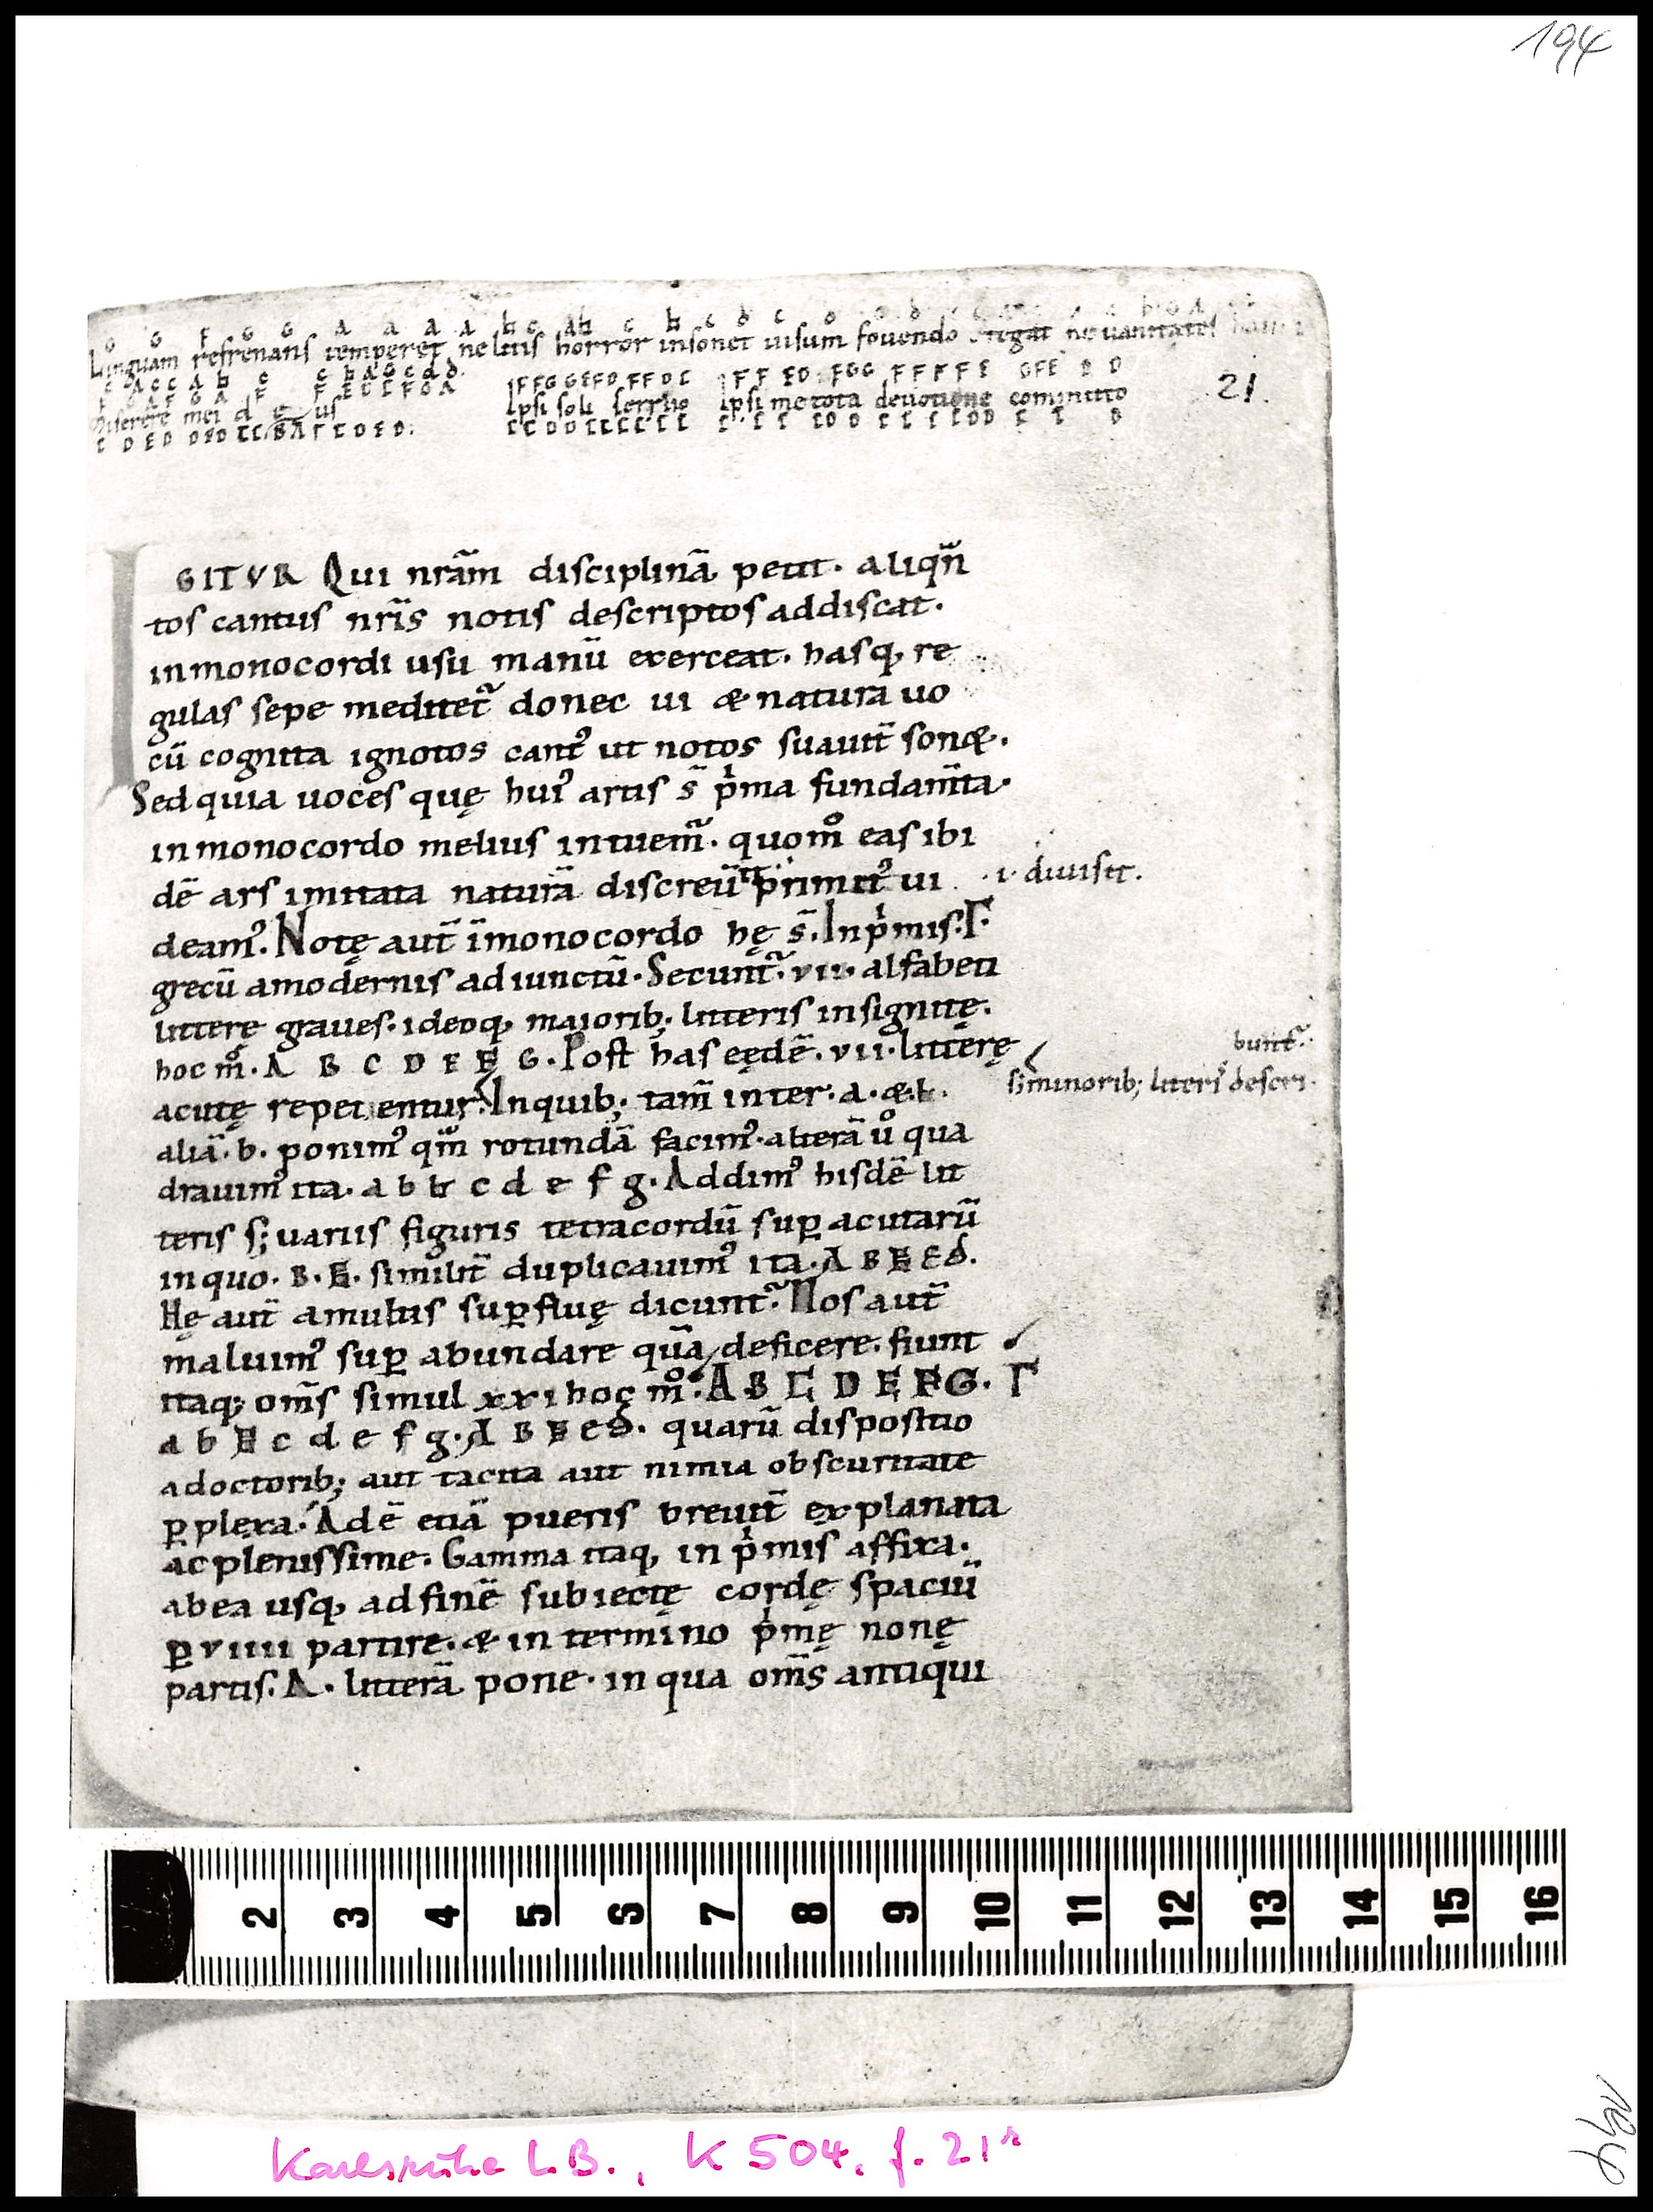 194
Linguam refrenans temperet ne litis horror insonet uisum fouendo
21
Miserere mei d e us Ipsi soli seruio Ipsi me tota deuotione committo
IGITVR Qui nr̄am disciplinā petit. aliqn̄
tos cantus nr̄is notis descriptos addiscat.
in monocordi usu manū exerceat. hasq, re
gulas sepe meditet᷑ donec ui & natura uo
cū cognita ignotos cantꝰ ut notos suauit̄ son&.
Sed quia uoces quę huiꝰ artis s̄ pͥma fundam̄ta.
in monocordo melius intuem᷑. quom̊ eas ibi
dē ars imitata naturā discreuit primitꝰ ui
.i. diuisit.
deamꝰ. Notę aut̄ ī monocordo hę s̄. In pͥmis. Γ.
grecū a modernis adiunctū. Secunt᷑. vii. alfabeti
litterę graues. ideoq, maiorib; litteris insignitę.
hoc m̊. A B C D E F G. Post has eędē. vii. litterę
acutę repetentur. In quib; tam̄ inter. a. &. ♮.
s; minorib; literis descri
bunt᷑.
aliā. b. ponimꝰ qm̄ rotundā facimꝰ. alterā ů qua
drauimꝰ ita. a b ♮ c d e f g. Addimꝰ hisdē lit
teris s; uariis figuris tetracordū suꝑ acutarū
in quo. B. ♮. similit̄ duplicauimꝰ ita. A B ♮ C d.
Hę aut̄ a multis suꝑfluę dicunt᷑. Nos aut̄
maluimꝰ suꝑ abundare quā deficere. fiunt
itaq; om̄s simul xxi hoc m̊. Γ A B C D E F G.
a b ♮ c d e f g. A B ♮ c d. quarū dispositio
a doctorib; aut tacita aut nimia obscuritate
ꝑplexa. Adē etiā pueris breuit̄ explanata
ac plenissime. Gamma itaq, in pͥmis affixa.
ab ea usq, ad finē subiectę cordę spaciū
ꝑ viiii partire. & in termino pͥmę nonę
partis. A. litterā pone. in qua om̄s antiqui
2 3 4 5 6 7 8 9 10 11 12 13 14 15 16
Karlsruhe L.B., K 504, f. 21r
194